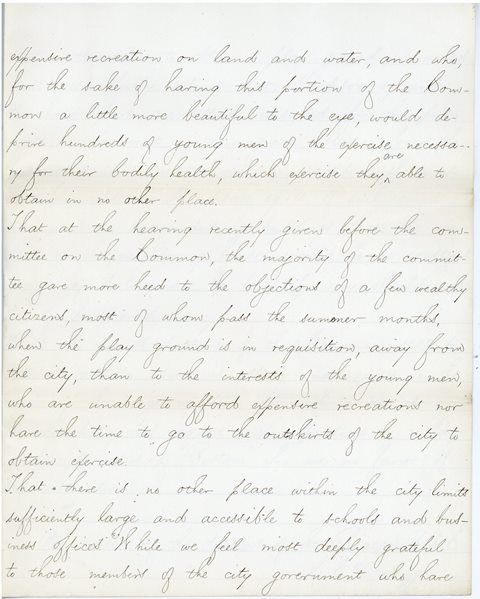 expensive recreation on land and water, and who,
for the sake of having this portion of the Com-
mon a little more beautiful to the eye, would de-
prive hundreds of young men of the exercise necessa-
ry for their bodily health, which exercise they are able to
obtain in no other place.
That at the hearing recently given before the com-
mittee on the Common, the majority of the commit-
tee gave more heed to the objections of a few wealthy
citizens, most of whom pass the summer months,
when the play ground is in requisition, away from
the city, than to the interests of the young men,
who are unable to afford expensive recreations nor
have the time to go to the outskirts of the city to
obtain exercise.
That there is no other place within the city limits
sufficiently large and accessible to schools and bus-
iness offices. While we feel most deeply grateful
to those members of the city government who have